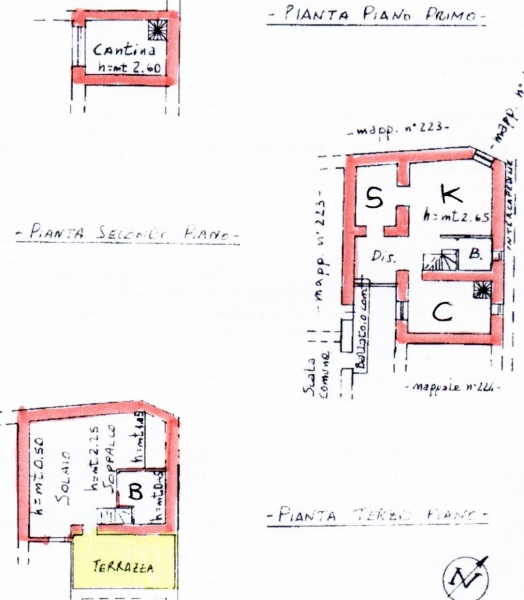 - PIANTA PIANO PRIMO -
Cantina
h=mt 2.60
- mapp. n° 223 -
- mapp. n°
INTERCAPEDINE
- mapp. n° 223 -
S
K
h=mt 2.65
Dis.
B.
C
Ballatoio com.
Scala
comune
- mappale n° 224 -
- PIANTA SECONDO PIANO -
h=mt 0.50
SOLAIO
h=mt 2.25
SOPPALCO
B
TERRAZZA
- PIANTA TERZO PIANO -
N